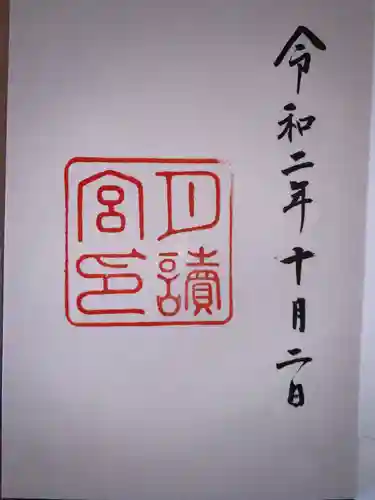 令和二年十月二日
月讀
宮印